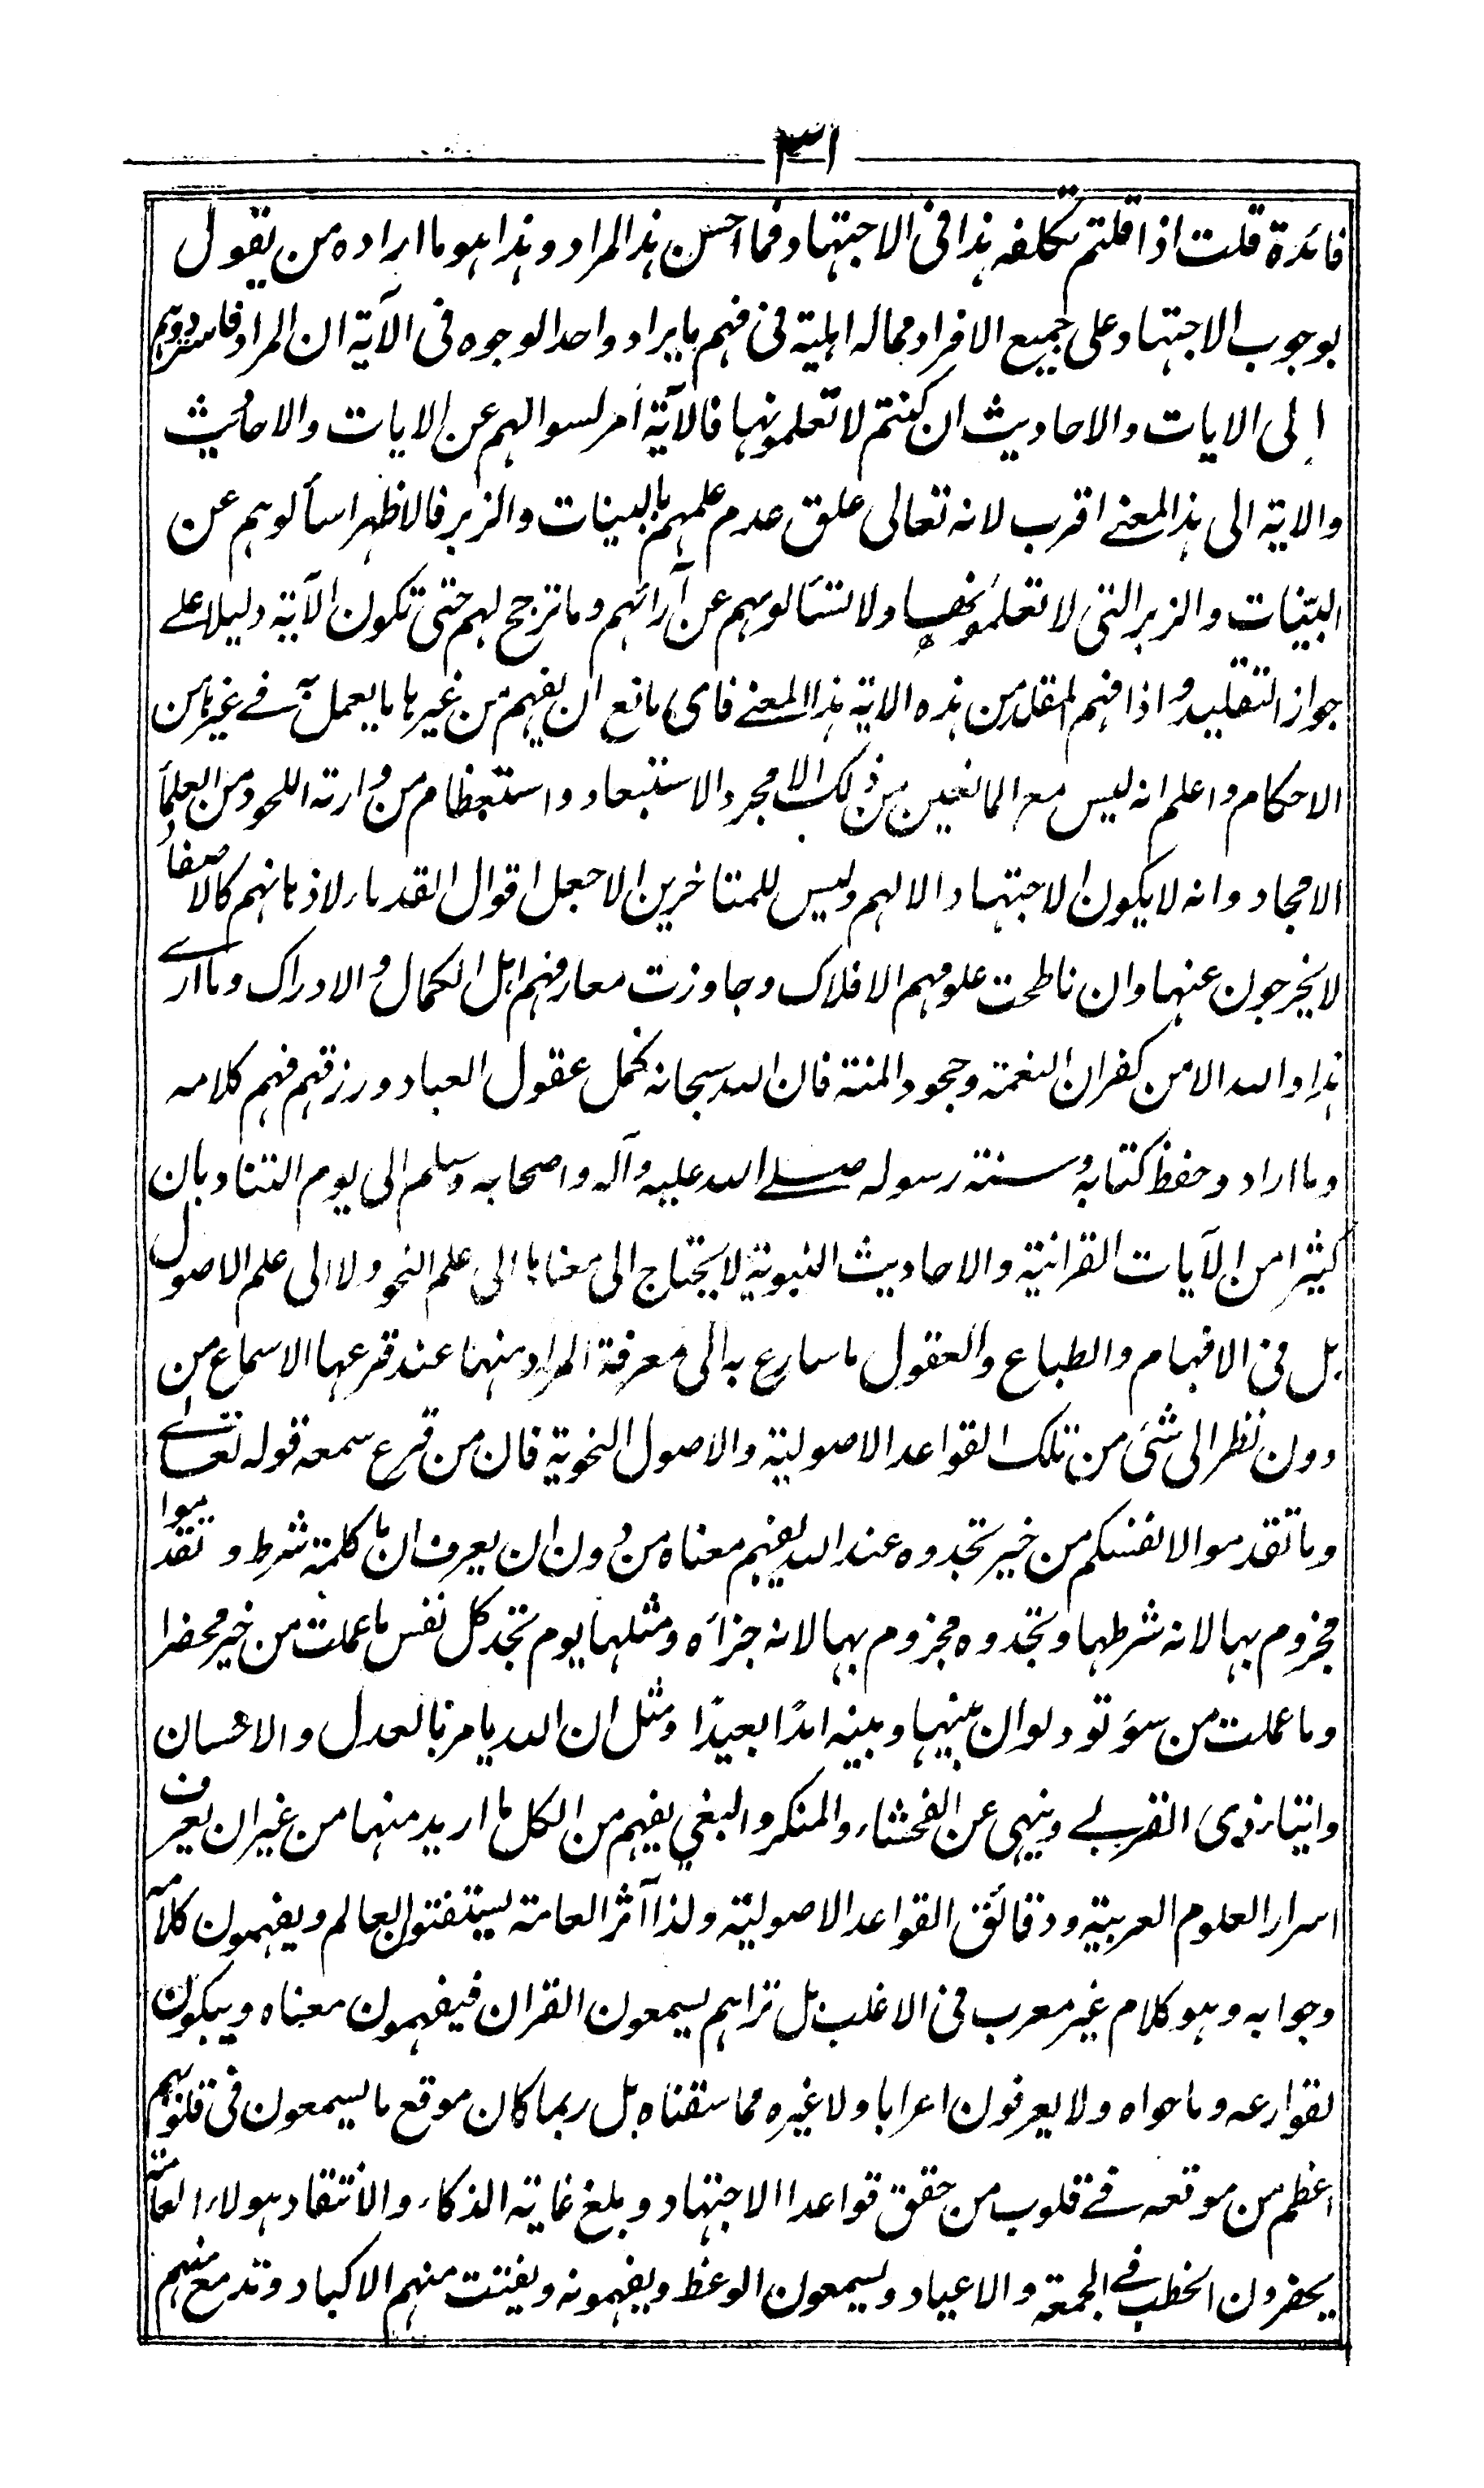 ٣١
فائدة قلت اذا قلتم تكلفه هذا فى الاجتهاد فما احسن هذا المراد وهذا هو ما اراده من يقول
بوجوب الاجتهاد على جميع الافراد مما له اهلية فى فهم ما يراد واحد الوجوه فى الآية ان المراد فاسر دوهم
الى الايات والاحاديث ان كنتم لا تعلمونها فالآية امر لسوالهم عن الايات والاحاديث
والاية الى هذا المعنے اقرب لانه تعالى علق عدم علمهم بالبينات والزبر فالاظهر اسألوهم عن
البيّنات والزبر التى لا تعلمونها ولا تسئالوهم عن آرائهم وما ترجح لهم حتى تكون الآية دليلا علے
جواز التقليد واذا فهم المقلد من هذه الاية هذا المعنے فاى مانع ان يفهم من غيرها ما يعمل به فے غيرها من
الاحكام واعلم انه ليس مع المانعين من ذلك الا مجرد الاستبعاد واستعظام من وارته اللحود من العلمأ
الامجاد وانه لا يكون الاجتهاد الا لهم وليس للمتاخرين الا جعل اقوال القدماء لاذهانهم كالاصفاد
لا يخرجون عنها وان ناطحت علومهم الافلاك وجاوزت معارفهم اهل الكمال والادراك وما ارے
هذا والله الا من كفران النعمة وجحود المنة فان الله سبحانه كمل عقول العباد ورزقهم فهم كلامه
وما اراد وحفظ كتابه وسنة رسوله صلے الله عليه وآله واصحابه وسلم الى يوم التناد بان
كثيرا من الآيات القرانية والاحاديث النبوية لا يحتاج الى معناها الى علم النحو ولا الى علم الاصول
بل فى الافهام والطباع والعقول ما سارع به الى معرفة المراد منها عند قرعها الاسماع من
دون نظر الى شئ من تلك القواعد الاصولية والاصول النحوية فان من قرع سمعه قوله تعالے
وما تقدموا لانفسكم من خير تجدوه عند الله يفهم معناه من دون ان يعرف ان ما كلمة شرط و تقدموا
مجزوم بها لانه شرطها وتجدوه مجزوم بها لانه جزاه ومثلها يوم تجد كل نفس ما عملت من خير محضرا
وما عملت من سؤ تود لوان بينها وبينه امدًا بعيدًا ومثل ان الله يامر بالعدل والاحسان
وايتاء ذى القربے وينهى عن الفحشاء والمنكر والبغي يفهم من الكل ما اريد منها من غير ان يعرف
اسرار العلوم العربية ودقائق القواعد الاصولية ولذا آثر العامة يستفتون العالم ويفهمون كلامه
وجوابه وهو كلام غير معرب فى الاغلب بل تراهم يسمعون القران فيفهمون معناه ويبكون
لقوارعه وما حواه ولا يعرفون اعرابا ولا غيره مما سقناه بل ربما كان موقع ما يسمعون فى قلوبهم
اعظم من موقعه فے قلوب من حقق قواعد الاجتهاد وبلغ غاية الذكاء والانتقاد هولاء العامة
يحضرون الخطب فے الجمعة والاعياد ويسمعون الوعظ ويفهمونه ويفتت منهم الاكباد وتدمع منهم